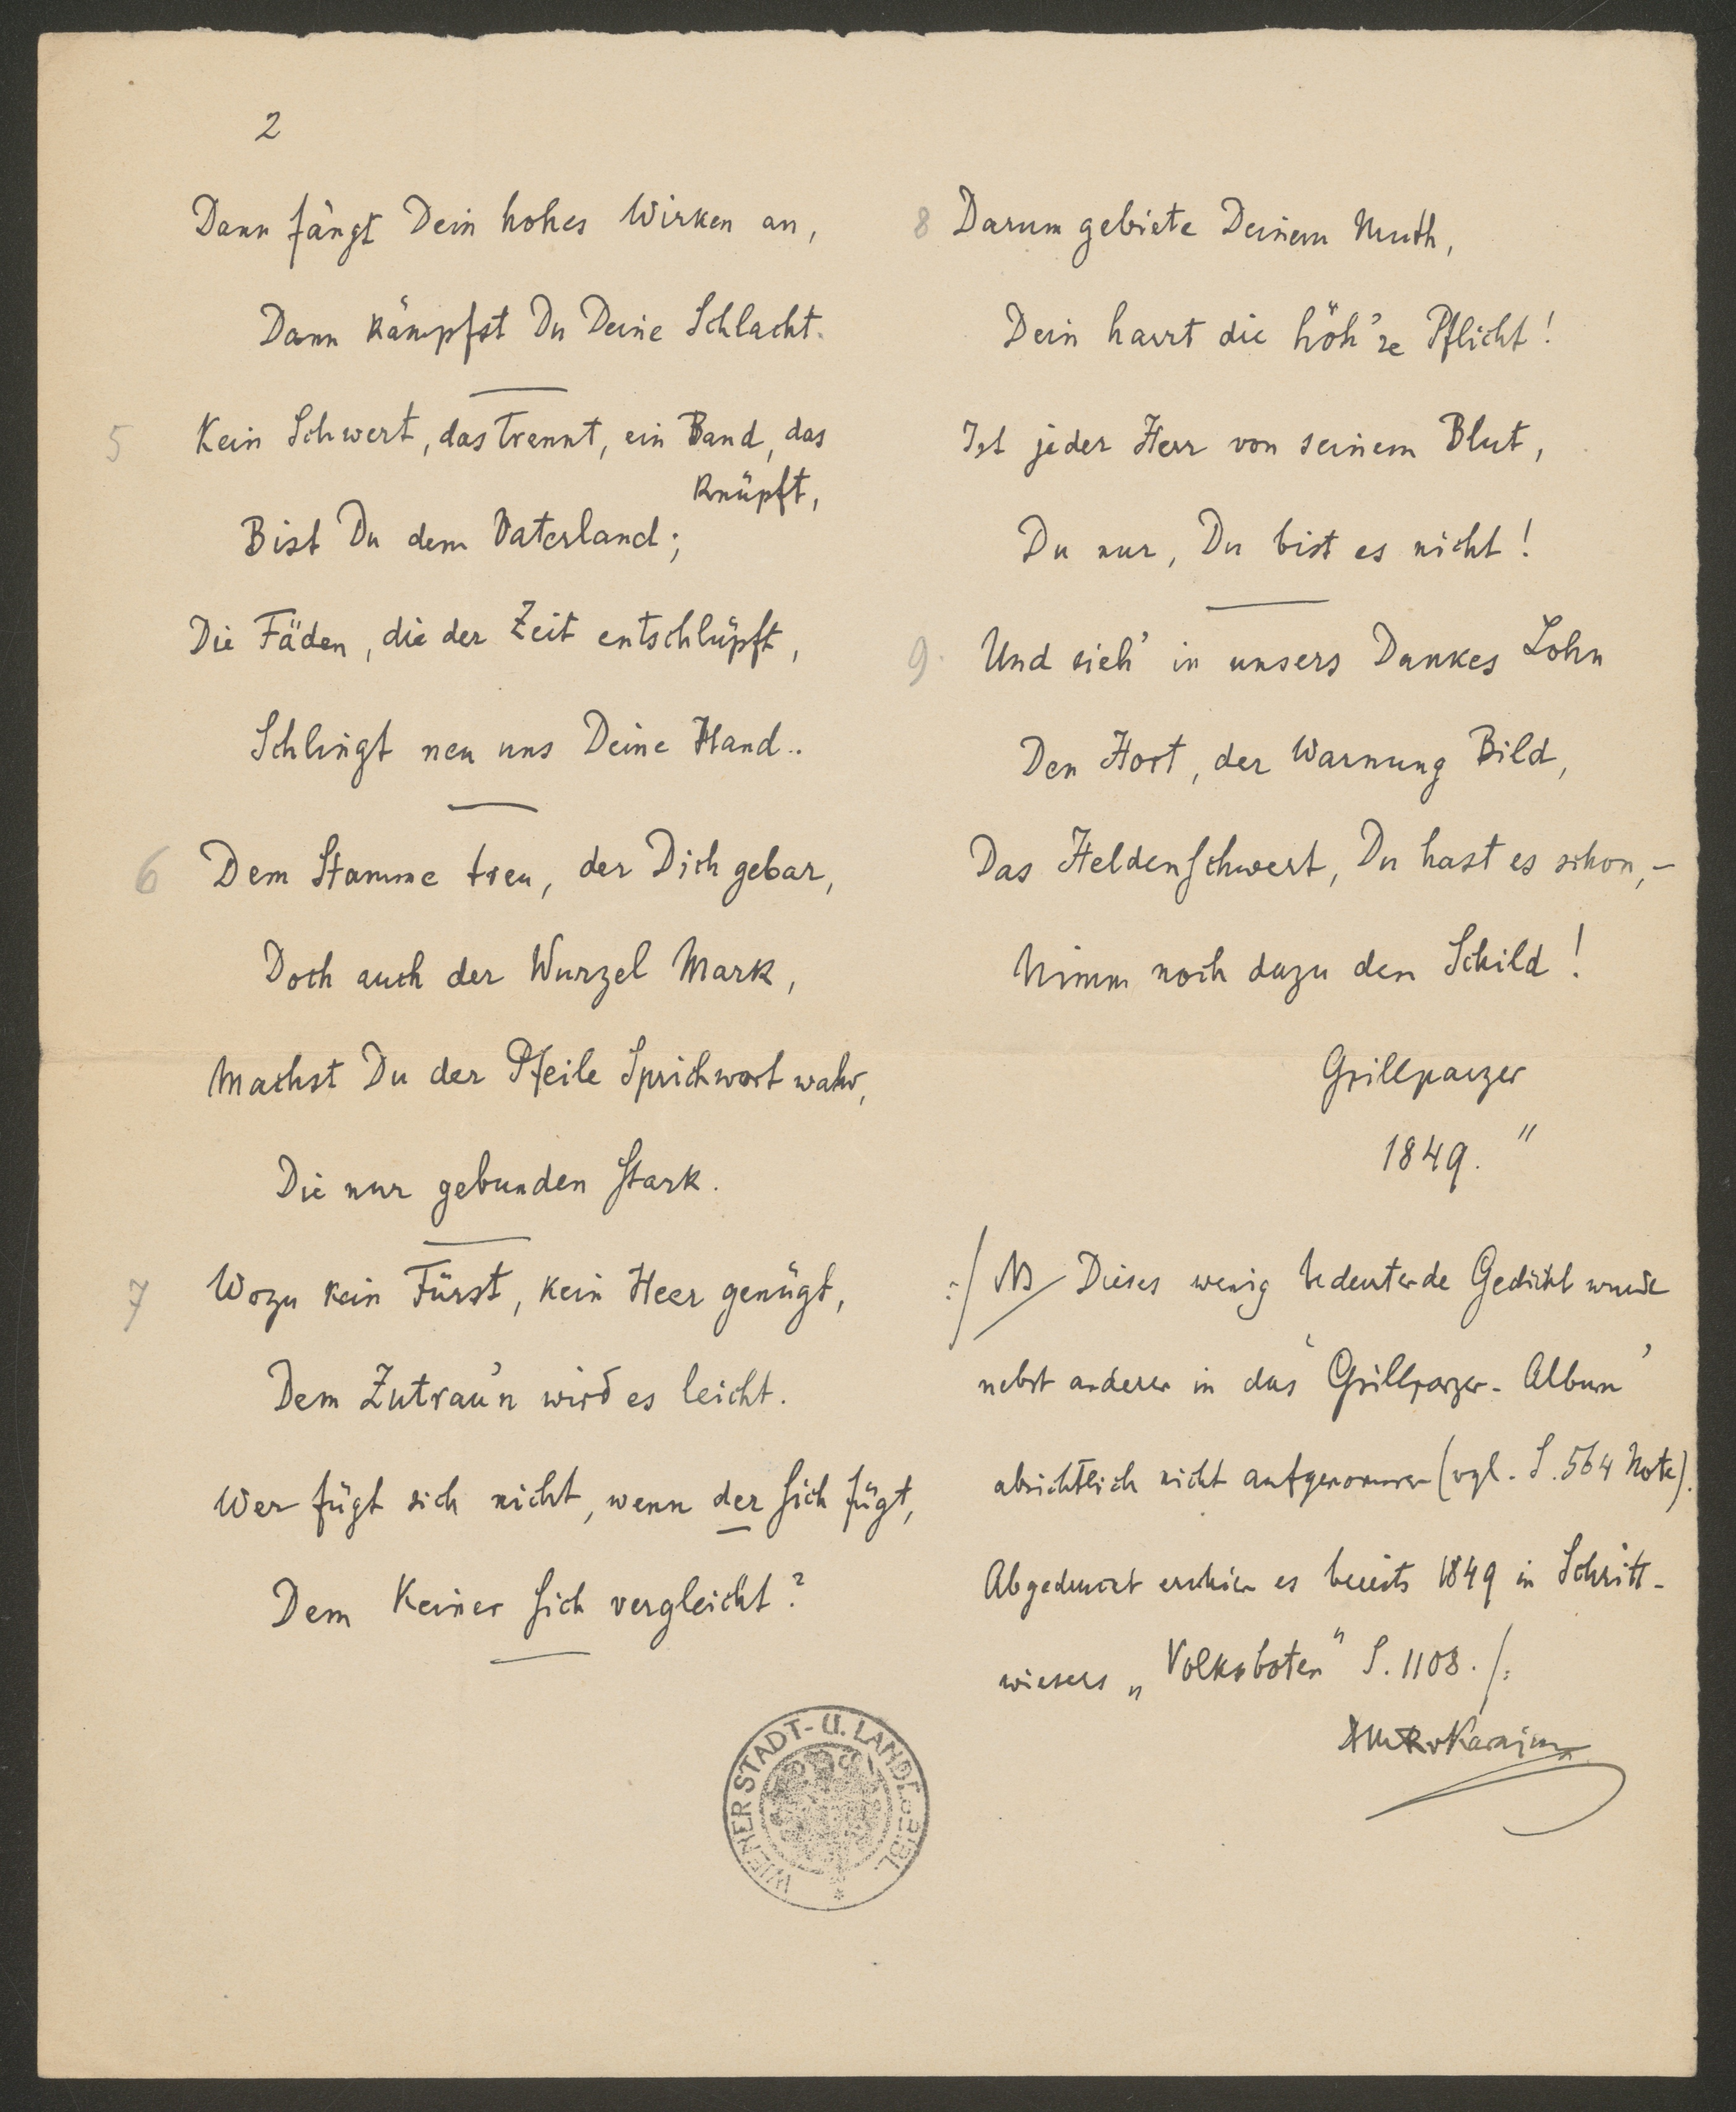 2
Dann fängt Dein hohes Wirken an,
Dann kämpfst Du Deine Schlacht.
5 Kein Schwert, das trennt, ein Band, das
knüpft,
Bist Du dem Vaterland;
Die Fäden, die der Zeit entschlüpft,
Schlingt neu uns Deine Hand..
6 Dem Stamme treu, der Dich gebar,
Doch auch der Wurzel Mark,
Machst Du der Pfeile Sprichwort wahr,
Die nur gebunden stark.
7 Wozu kein Fürst, kein Heer genügt,
Dem Zutrau'n wird es leicht.
Wer fügt sich nicht, wenn der sich fügt,
Dem Keiner sich vergleicht?
8 Darum gebiete Deinem Muth,
Dein harrt die höh're Pflicht!
Ist jeder Herr von seinem Blut,
Du nur, Du bist es nicht!
9. Und sieh' in unsers Dankes Lohn
Den Hort, der Warnung Bild,
Das Heldenschwert, Du hast es schon,-
Nimm noch dazu den Schild!
Grillparzer
1849."
:/ NB Dieses wenig bedeutende Gedicht wurde
nebst anderen in das 'Grillparzer-Album'
absichtlich nicht aufgenommen (vgl. S. 564 Note).
Abgedruckt erschien es bereits 1849 in Schritt-
wiesers „Volksboten" S. 1108. /:
Karajan
WIENER STADT- U. LANDES-BIBL.